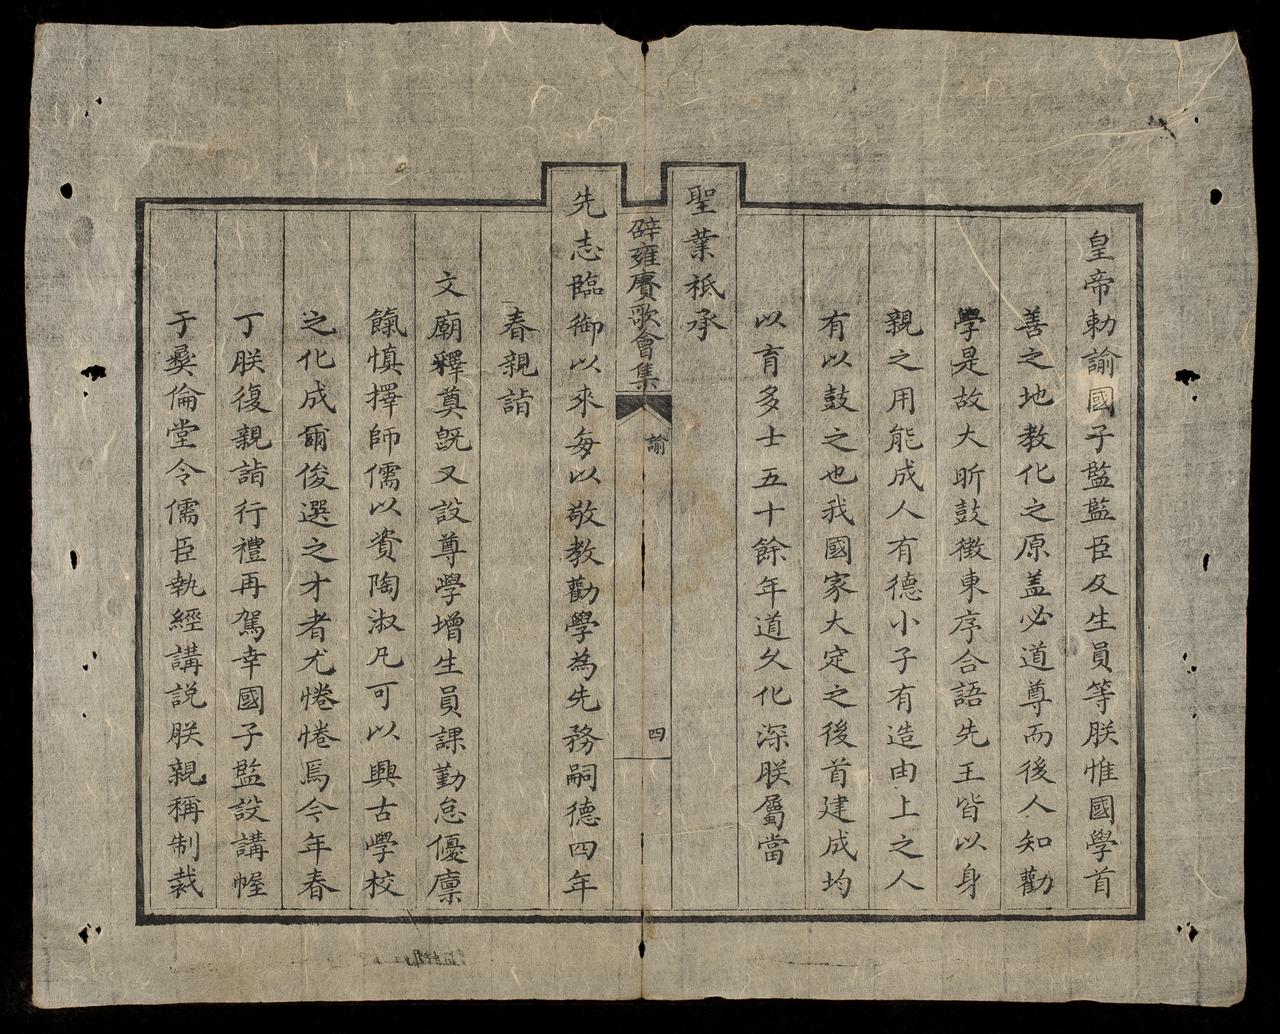 皇帝勅諭國子監監臣及生員等朕惟國學首
善之地教化之原盖必道尊而後人知勸
學是故大昕鼓徵東序合語先王皆以身
親之用能成人有德小子有造由上之人
有以鼓之也我國家大定之後首建成均
以育多士五十餘年道久化深朕屬當
聖業祗承
辟雍賡歌會集
諭
四
先志臨御以來每以敬教勸學為先務嗣德四年
春親詣
文廟釋奠既又設尊學增生員課勤怠優廪
餼慎擇師儒以資陶淑凡可以興古學校
之化成爾俊選之才者尤惓惓焉今年春
丁朕復親詣行禮再駕幸國子監設講幄
于彝倫堂令儒臣執經講説朕親稱制裁